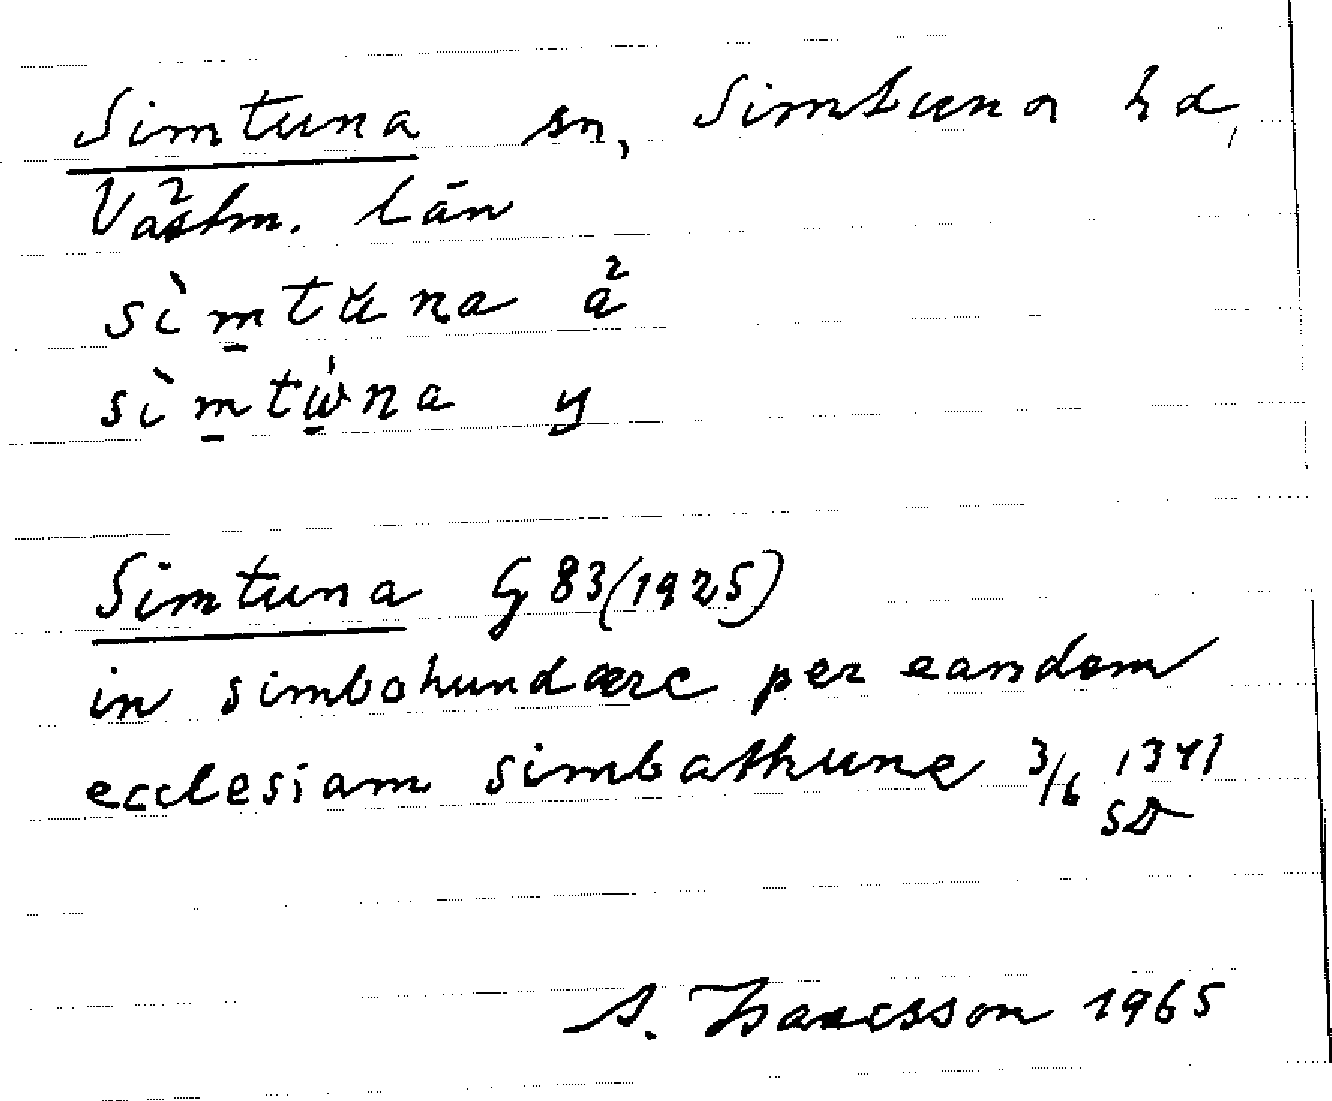 Simtuna sn, Simtuna hd,
Västm. län
sìmtŭna ä
sìmtu̇na y
Simtuna G 83 (1925)
in simbohundære per eandem
ecclesiam simbathune 3/6 1341
SD
A. Isaacsson 1965